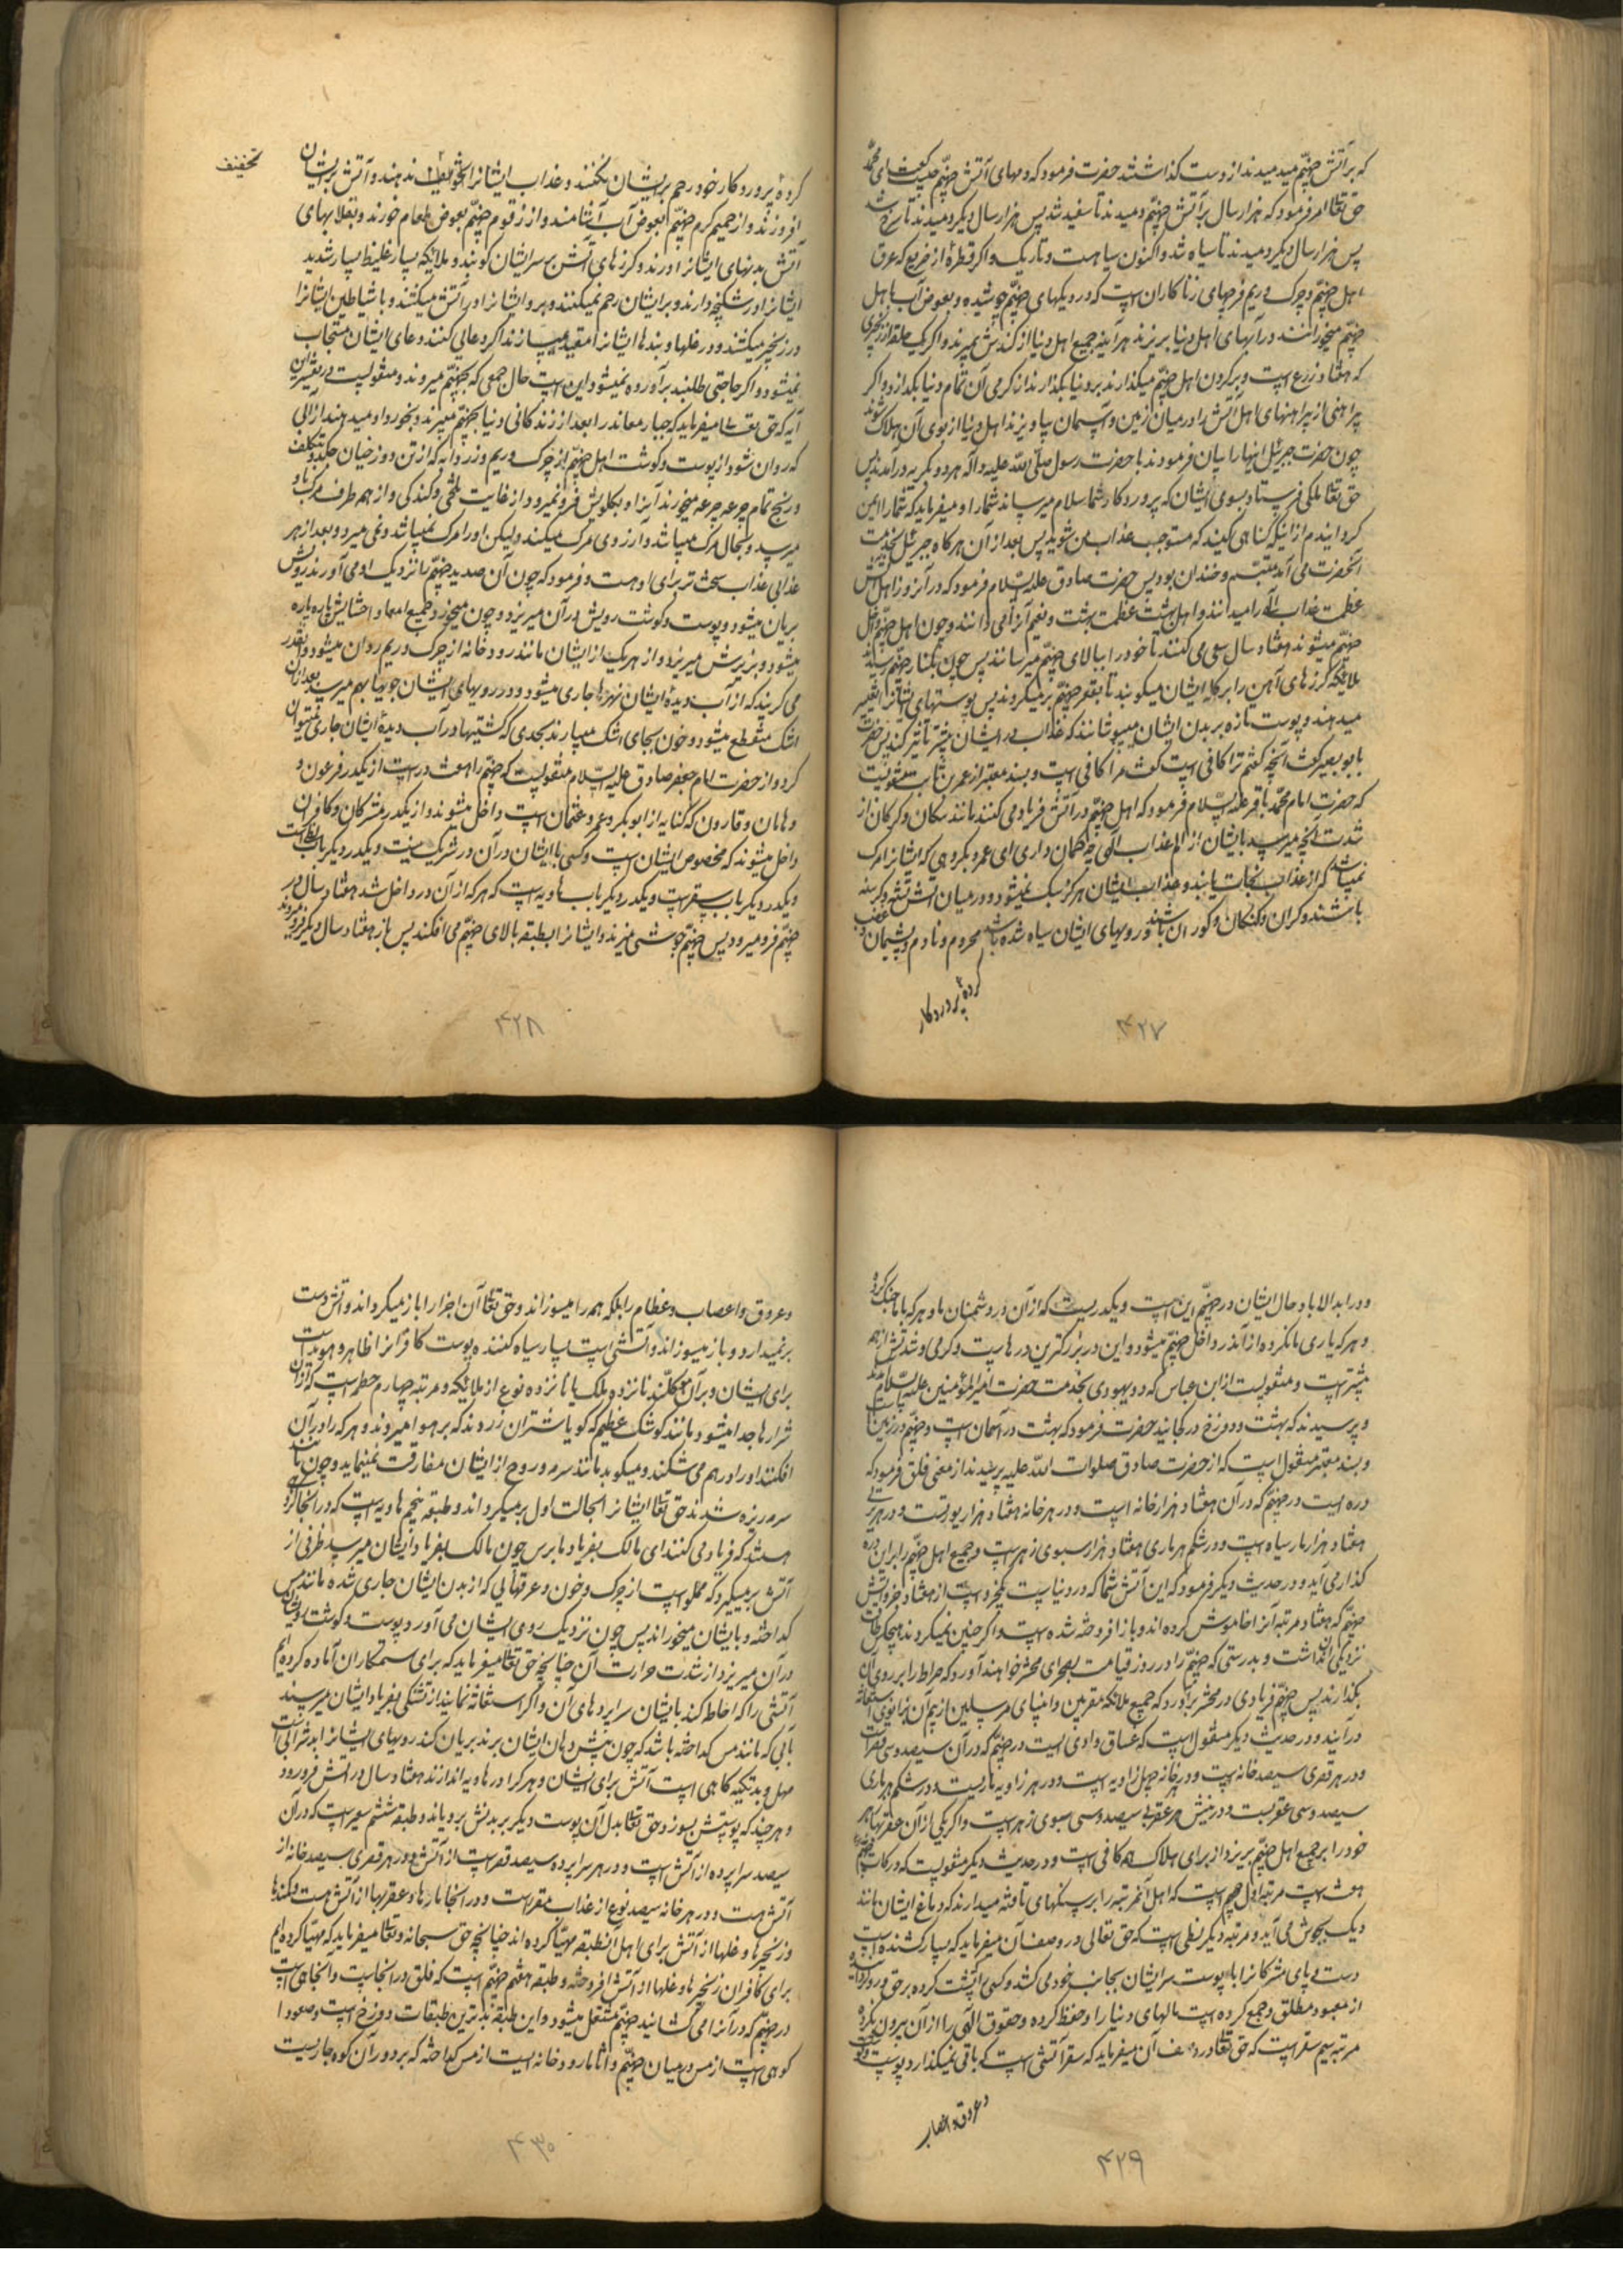 که بر آتش جهنّم میدمیدند از دست گذاشتند حضرت فرمود که دمهای آتش جهنّم چیست گفت ای محمّد
حق تعالی امر فرمود که هزار سال بر آتش جهنّم دمیدند تا سفید شد پس هزار سال دیگر دمیدند تا سرخ شد
پس هزار سال دیگر دمیدند تا سیاه شد و اکنون سیاهست و تاریک و اگر قطرهٔ از ضریع که عرق
اهل جهنّم و چرک و ریم فرجهای زناکاران است که در دیکهای جهنّم جوشیده و بعوض آب باهل
جهنّم میخورانند در آبهای اهل دنیا بریزند هر آینه جمیع اهل دنیا از گندش بمیرند و اگر یک حلقه از زنجیری
که هفتاد زرع است و بر گردن اهل جهنّم میگذارند بر دنیا بگذارند از گرمی آن تمام دنیا بگدازد و اگر
پیراهنی از پیراهنهای اهل آتش را در میان زمین و آسمان بیاویزند اهل دنیا از بوی آن هلاک شوند
چون حضرت جبرئیل اینها را بیان فرمودند با حضرت رسول صلّی اللّه علیه و آله هر دو بگریه در آمدند پس
حق تعالی ملکی فرستاد بسوی ایشان که پروردگار شما سلام میرساند شما را و میفرماید که شما را ایمن
گردانیدم از اینکه گناهی کنید که مستوجب عذاب من شوید پس بعد از آن هرگاه جبرئیل بخدمت
آنحضرت می آمد متبسّم و خندان بود پس حضرت صادق علیه السّلام فرمود که در آنروز اهل آتش
عظمت عذاب الهی را میدانند و اهل بهشت عظمت بهشت و نعیم آنرا می دانند و چون اهل جهنّم داخل
جهنّم میشوند هفتاد سال سعی می کنند تا خود را ببالای جهنّم میرسانند پس چون بکنار جهنّم رسیدند
ملائکه گرزهای آهن را بر کلهٔ ایشان میکوبند تا بقعر جهنّم برمیگردند پس پوستهای ایشانرا تغییر
میدهند و پوست تازه بر بدن ایشان میپوشانند که عذاب در ایشان بیشتر تأثیر کند پس حضرت
بابو بصیر گفت آنچه گفتم ترا کافی است گفت مرا کافی است و بسند معتبر از عمر بن ثابت منقولست
که حضرت امام محمّد باقر علیه السّلام فرمود که اهل جهنّم در آتش فریاد می کنند مانند سگان و گرگان از
شدت آنچه میرسد بایشان از الم عذاب الهی چه گمان داری ای عمرو بگروهی که ایشانرا مرگ
نمیباشد که از عذاب نجات یابند و عذاب ایشان هرگز سبک نمیشود و در میان آتش تشنه و گرسنه
باشند و کران و گنگان و کوران باشند و رویهای ایشان سیاه شده باشد محروم و نادم و پشیمان و غضب
کردهٔ پروردگار
۴۲۷
کردهٔ پروردگار خود رحم بر ایشان نکنند و عذاب ایشانرا تخفیف ندهند و آتش بر ایشان
تخفیف
افروزند و از حمیم گرم جهنّم بعوض آب آشامند و از زقوم جهنّم بعوض طعام خورند و بقلابهای
آتش بدنهای ایشانرا درند و گرزهای آتش بر سر ایشان کوبند و ملائکه بسیار غلیظ بسیار شدید
ایشانرا در شکنجه دارند و بر ایشان رحم نمیکنند و بر رو ایشانرا در آتش میکشند و با شیاطین ایشانرا
در زنجیر میکشند و در غلها و بندها ایشانرا مقید میسازند اگر دعا کنند دعای ایشان مستجاب
نمیشود و اگر حاجتی طلبند برآورده نمیشود این است حال جمعی که بجهنّم میروند و منقولست در تفسیر این
آیه که حق تعالی میفرماید که جبار معاند را بعد از زندگانی دنیا بجهنّم میبرند و بخورد او میدهند از آبی
که روان شود از پوست و گوشت اهل جهنّم از چرک و ریم و زردآبه که از تن دوزخیان چکد و بتکلف
و رنج تمام جرعه جرعه میخورند آنرا و بگلویش فرو نمیرود از غایت تلخی و گندگی و از همه طرف مرگ باو
میرسد و بحال مرگ میباشد و آرزوی مرگ میکند ولیکن او را مرگ نمیباشد و نمی میرد و بعد از هر
عذابی عذاب سخت تر برای او هست و فرمود که چون آن صدید جهنّم را نزدیک او می آورند رویش
بریان میشود و پوست و گوشت رویش در آن میریزد و چون میخورد جمیع امعا و احشایش پاره پاره
میشود و بزیرش میریزد و از هر یک از ایشان مانند رودخانه از چرک و ریم روان میشود و آنقدر
می گریند که از آب دیدهٔ ایشان نهرها جاری میشود و در رویهای ایشان جویها بهم میرسد بعد از آن
اشک منقطع میشود و خون بجای اشک میبارند بحدی که کشتیها در آب دیدهٔ ایشان جاری میتوان
کرد و از حضرت امام جعفر صادق علیه السّلام منقولست که جهنّم را هفت در است از یکدر فرعون و
و هامان و قارون که کنایه از ابوبکر و عمر و عثمان است داخل میشوند و از یکدر مشرکان و کافران
داخل میشوند که مخصوص ایشان است و کسی با ایشان در آن در شریک نیست و یکدر دیگر باب لظی است
و یکدر دیگر باب سقر است و یکدر دیگر باب هاویه است که هر که از آن در داخل شد هفتاد سال در
جهنّم فرو میرود پس جهنّم جوشی میزند و ایشانرا بطبقه بالای جهنّم می افکند پس باز هفتاد سال دیگر فرو میروند
۴۲۸
و در ابد الاباد حال ایشان در جهنّم این است و یکدریست که از آن در دشمنان ما و هر که با ما جنگ کرده
و هر که یاری ما نکرده از آندر داخل جهنّم میشود و این در بزرگترین درهاست و گرمی و شدتش از همه
بیشتر است و منقولست از ابن عباس که دو یهودی بخدمت حضرت امیر المؤمنین علیه السّلام آمدند
و پرسیدند که بهشت و دوزخ در کجایند حضرت فرمود که بهشت در آسمان است و جهنّم در زمین است
و بسند معتبر منقول است که از حضرت صادق صلوات اللّه علیه پرسیدند از معنی فلق فرمود که
دره ایست در جهنّم که در آن هفتاد هزار خانه است و در هر خانه هفتاد هزار بیوتست و در هر بیتی
هفتاد هزار مار سیاه است و در شکم هر ماری هفتاد هزار سبوی زهر است و جمیع اهل جهنّم را بر این دره
گذار می آید و در حدیث دیگر فرمود که این آتش شما که در دنیاست یکجزو است از هفتاد جزو آتش
جهنّم که هفتاد مرتبه آنرا خاموش کرده اند و باز افروخته شده است و اگر چنین نمیکردند هیچکس طاقت
نزدیکی آن نداشت و بدرستی که جهنّم را در روز قیامت بصحرای محشر خواهند آورد که صراط را بر روی آن
بگذارند پس جهنّم فریادی در محشر برآورد که جمیع ملائکه مقربین و انبیای مرسلین از بیم آن بزانوی استغاثه
درآیند و در حدیث دیگر منقول است که غساق وادی ایست در جهنّم که در آن سیصد و سی قصر است
و در هر قصری سیصد خانه است و در هر خانه چهل زاویه است و در هر زاویه ماریست و در شکم هر ماری
سیصد و سی عقربست و در نیش هر عقربی سیصد و سی سبوی زهر است و اگر یکی از آن عقربها زهر
خود را بر جمیع اهل جهنّم بریزد از برای هلاک همه کافی است و در حدیث دیگر منقولست که درکات جهنّم
هفت است مرتبه اول جحیم است که اهل آنمرتبه را بر سنگهای تافته میدارند که دماغ ایشان مانند
دیک بجوش می آید و مرتبه دیگر لظی است که حق تعالی در وصف آن میفرماید که بسیار کشنده است
دست و پای مشرکانرا یا پوست سر ایشان بجانب خود می کشد و کسی را که پشت کرده بر حق و رو گردانیده
از معبود مطلق و جمع کرده است مالهای دنیا را و حفظ کرده و حقوق الهی را از آن بیرون نکرده
مرتبه سیم سقر است که حق تعالی در وصف آن میفرماید که سقر آتشی است که باقی نمیگذارد پوست و گوشت
و عروق و اعصاب
۴۲۹
و عروق و اعصاب و عظام را بلکه همه را میسوزاند و حق تعالی آن اجزا را باز میگرداند و آتش دست
برنمیدارد و باز میسوزاند و آتشی است بسیار سیاه کننده پوست کافرانرا ظاهر و هویداست
برای ایشان و بر آن موکلّند نانزده ملک یا نانزده نوع از ملائکه و مرتبه چهارم حطمه است که از آن
شرارها جدا میشود مانند کوشک عظیم که گویا شتران زردند که بر هوا میروند و هر که را در آن
افکنند او را در هم می شکند و میکوبد مانند سرمه و روح از ایشان مفارقت نمینماید و چون مانند
سرمه ریزه شدند حق تعالی ایشانرا بحالت اول برمیگرداند و طبقه پنجم هاویه است که در آنجا گروهی
هستند که فریاد می کنند ای مالک بفریاد ما برس چون مالک بفریاد ایشان میرسد ظرفی از
آتش برمیگیرد که مملو است از چرک و خون و عرقهائی که از بدن ایشان جاری شده مانند مس
گداخته و بایشان میخوراند پس چون نزدیک روی ایشان می آورد پوست و گوشت رویشان
در آن میریزد از شدت حرارت آن چنانچه حق تعالی میفرماید که برای ستمکاران آماده کرده ایم
آتشی را که احاطه کند بایشان سراپردهای آن و اگر استغاثه نمایند از تشنگی بفریاد ایشان میرسند
بآبی که مانند مس گداخته باشد که چون پیش دهان ایشان برند بریان کند رویهای ایشانرا بد شرابی است
مهل و بد تکیه گاهی است آتش برای ایشان و هر که را در هاویه اندازند هفتاد سال در آتش فرو رود
و هر چند که پوستش بسوزد حق تعالی بدل آن پوست دیگر بر بدنش برویاند و طبقه ششم سعیر است که در آن
سیصد سراپرده از آتش است و در هر سراپرده سیصد قصر است از آتش و در هر قصری سیصد خانه از
آتش است و در هر خانه سیصد نوع از عذاب مقرر است و در آنجا مارها و عقربها از آتش هست و کندها
و زنجیرها و غلها از آتش برای اهل آنطبقه مهیّا کرده اند چنانچه حق سبحانه و تعالی میفرماید که مهیّا کرده ایم
برای کافران زنجیرها و غلها از آتش افروخته و طبقه هفتم جهنّم است که فلق در آنجاست و آنچاهی است
در جهنّم که در آنرا می گشایند جهنّم مشتعل میشود و این طبقه بدترین طبقات دوزخ است و صعودا
کوهی است از مس در میان جهنّم و اثاما رودخانه ایست از مس گداخته که بر دور آن کوه جاریست
۴۳۰